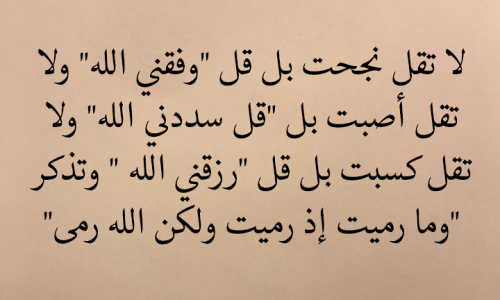 لا تقل نجحت بل قل "وفقني الله" ولا
تقل أصبت بل "قل سددني الله" ولا
تقل كسبت بل قل "رزقني الله " وتذكر
"وما رميت إذ رميت ولكن الله رمى"